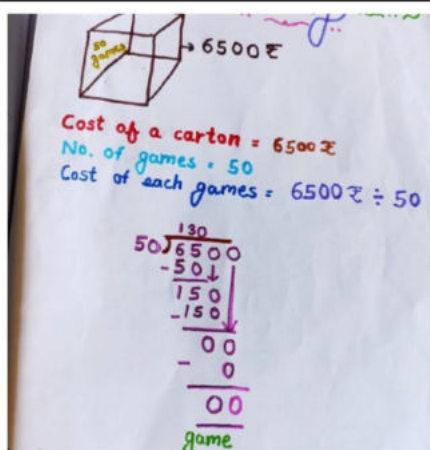 50
games
6500 ₹
Cost of a carton = 6500 ₹
No. of games = 50
Cost of each games = 6500 ₹ ÷ 50
130
50)6500
-50
150
-150
00
- 0
00
game